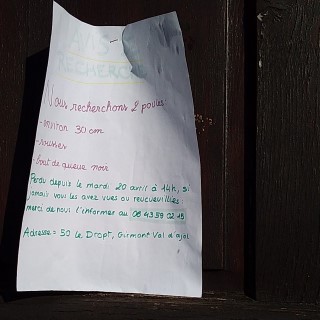 AVIS
RECHERCHE
Nous recherchons 2 poules
-environ 30 cm
-rousses
-bout de queue noir
Perdu depuis le mardi 20 avril à 14h, si
jamais vous les avez vues ou reucueuillies
merci de nous l'informer au 06 43 59 02 15
Adresse = 50 Le Dropt, Girmont Val d'ajol